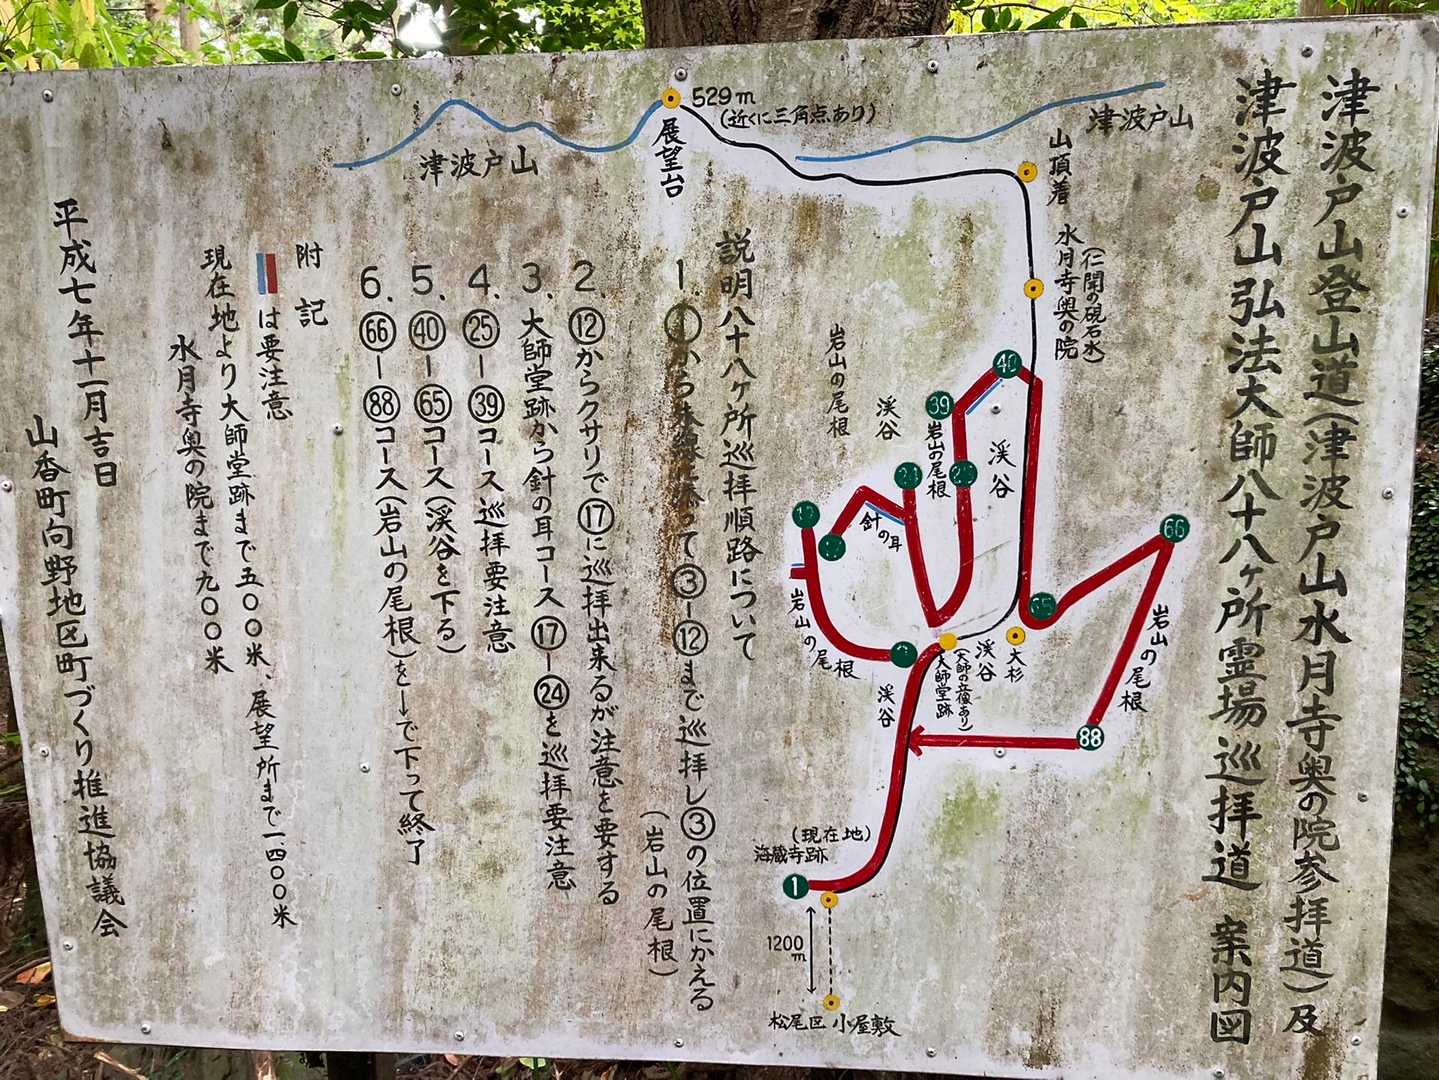 津波戸山登山道(津波戸山水月寺奥の院参拝道)及
津波戸山弘法大師八十八ヶ所霊場巡拝道 案内図
529m
(近くに三角点あり)
展望台
津波戸山
津波戸山
山頂着
(仁聞の硯石水)
水月寺奥の院
40
39
岩山の尾根
渓谷
渓谷
岩山の尾根
針の耳
66
65
岩山の尾根
岩山の尾根
大杉
渓谷
(大師の立像あり)
大師堂跡
渓谷
88
(現在地)
海蔵寺跡
1
1200m
松尾区 小屋敷
説明八十八ヶ所巡拝順路について
1. ①から
って③-⑫まで巡拝し③の位置にかえる
(岩山の尾根)
2. ⑫からクサリで⑰に巡拝出来るが注意を要する
3. 大師堂跡から針の耳コース⑰-㉔を巡拝要注意
4. ㉕-㊴コース巡拝要注意
5. ㊵-65コース(渓谷を下る)
6. 66-88コース(岩山の尾根)を↓で下って終了
附記
は要注意
現在地より大師堂跡まで五〇〇米、展望所まで一、四〇〇米
水月寺奥の院まで九〇〇米
平成七年十一月吉日
山香町向野地区町づくり推進協議会